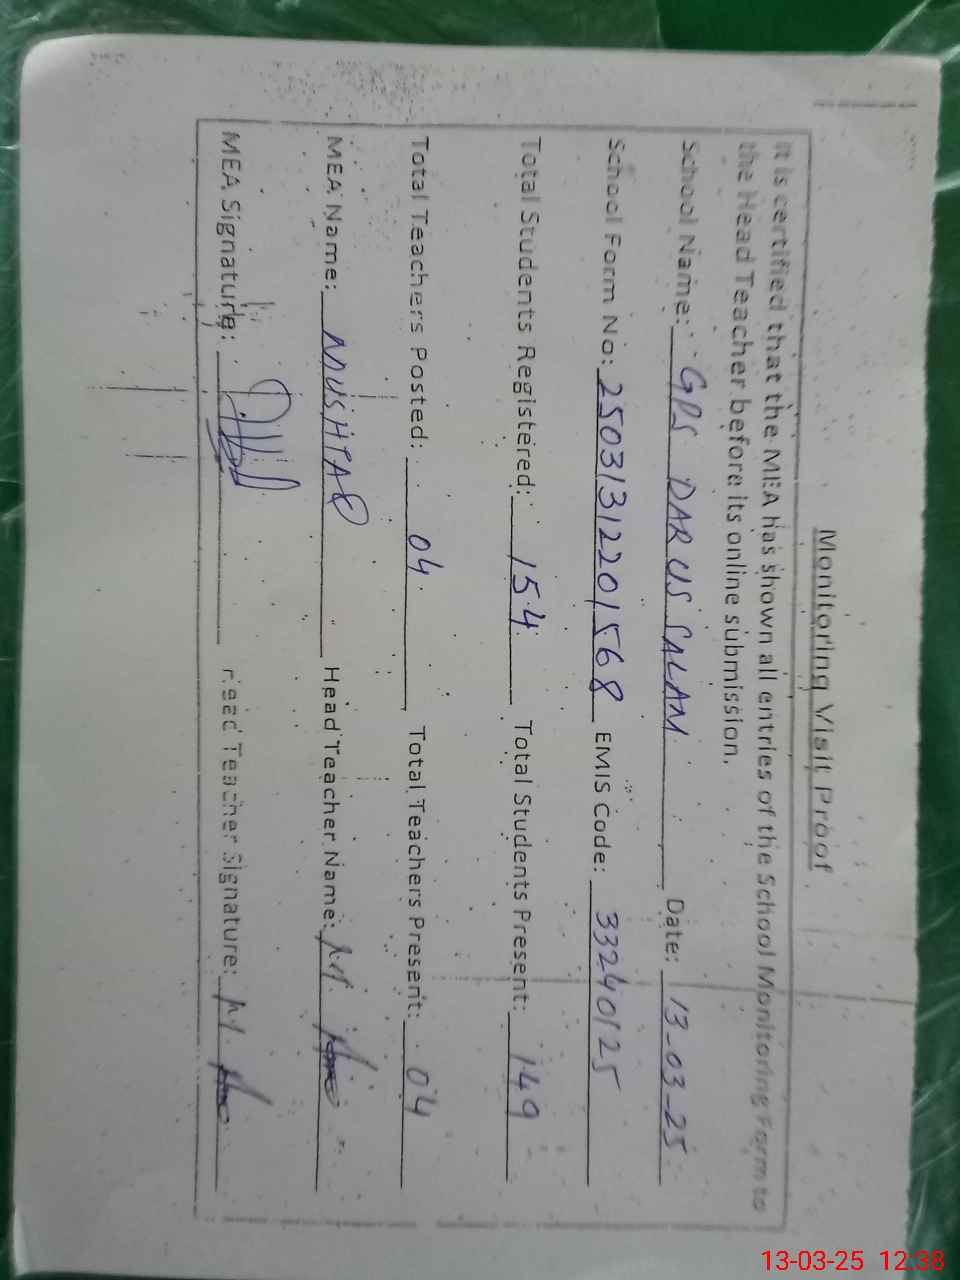 Monitoring Visit Proof
It is certified that the MEA has shown all entries of the School Monitoring Form to
the Head Teacher before its online submission.
School Name: GPS DARUS SALAM Date: 13-03-25
School Form No: 25031312201568 EMIS Code: 33240125
Total Students Registered: 154 Total Students Present: 149
Total Teachers Posted: 04 Total Teachers Present: 04
MEA Name: MUSHTAQ Head Teacher Name: M.
MEA Signature: Head Teacher Signature: M.
13-03-25 12:38